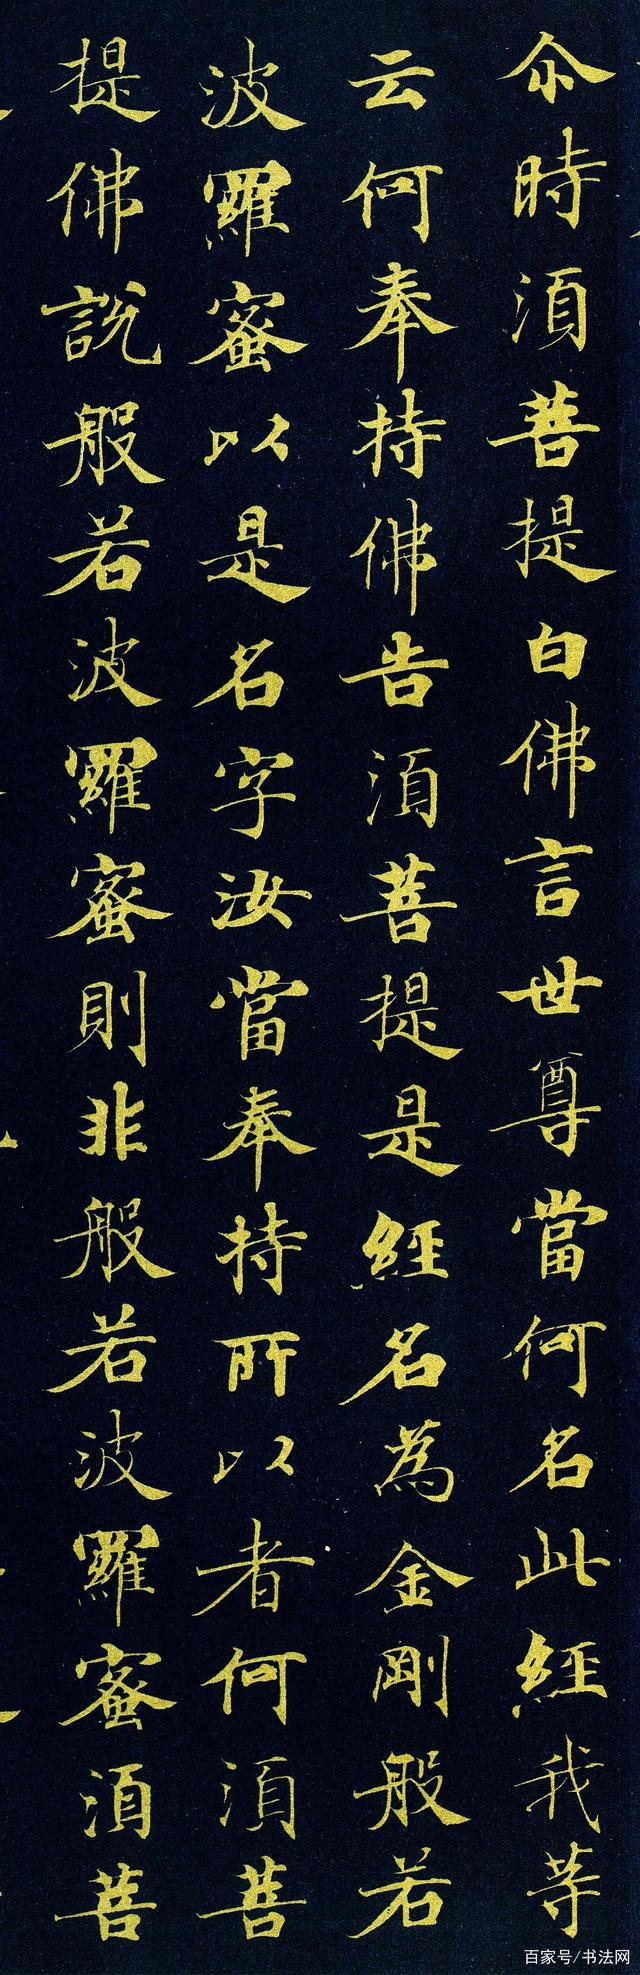 尒時湏菩提白佛言世尊當何名此經我等
云何奉持佛告湏菩提是經名為金剛般若
波羅蜜以是名字汝當奉持所以者何湏菩
提佛說般若波羅蜜則非般若波羅蜜湏菩
百家号/书法网